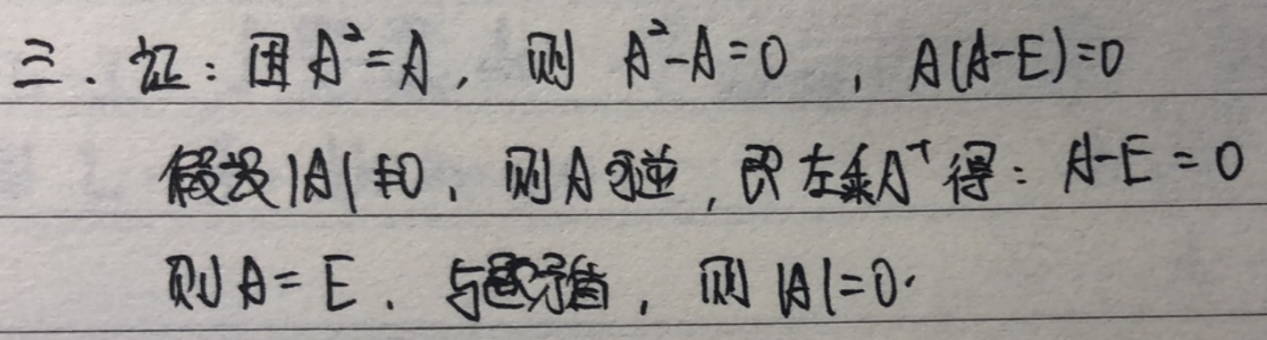 三. 证: 因 A²=A, 则 A²-A=0, A(A-E)=0
假设|A|≠0, 则A可逆, 即左乘A⁻¹得: A-E=0
则A=E. 与题矛盾, 则|A|=0.